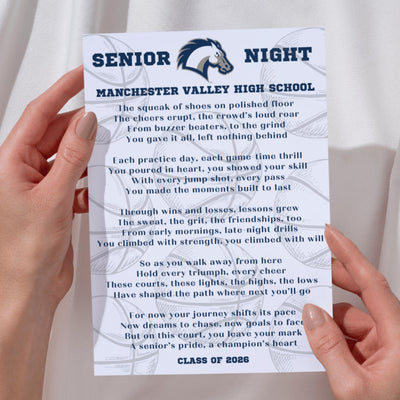 SENIOR NIGHT
MANCHESTER VALLEY HIGH SCHOOL
The squeak of shoes on polished floor
The cheers erupt, the crowd's loud roar
From buzzer beaters, to the grind
You gave it all, left nothing behind
Each practice day, each game-time thrill
You poured in heart, you showed your skill
With every jump shot, every pass
You made the moments built to last
Through wins and losses, lessons grew
The sweat, the grit, the friendships, too
From early mornings, late-night drills
You climbed with strength, you climbed with will
So as you walk away from here
Hold every triumph, every cheer
These courts, these lights, the highs, the lows
Have shaped the path where next you'll go
For now your journey shifts its pace
New dreams to chase, new goals to face
But on this court, you leave your mark
A senior's pride, a champion's heart
CLASS OF 2026